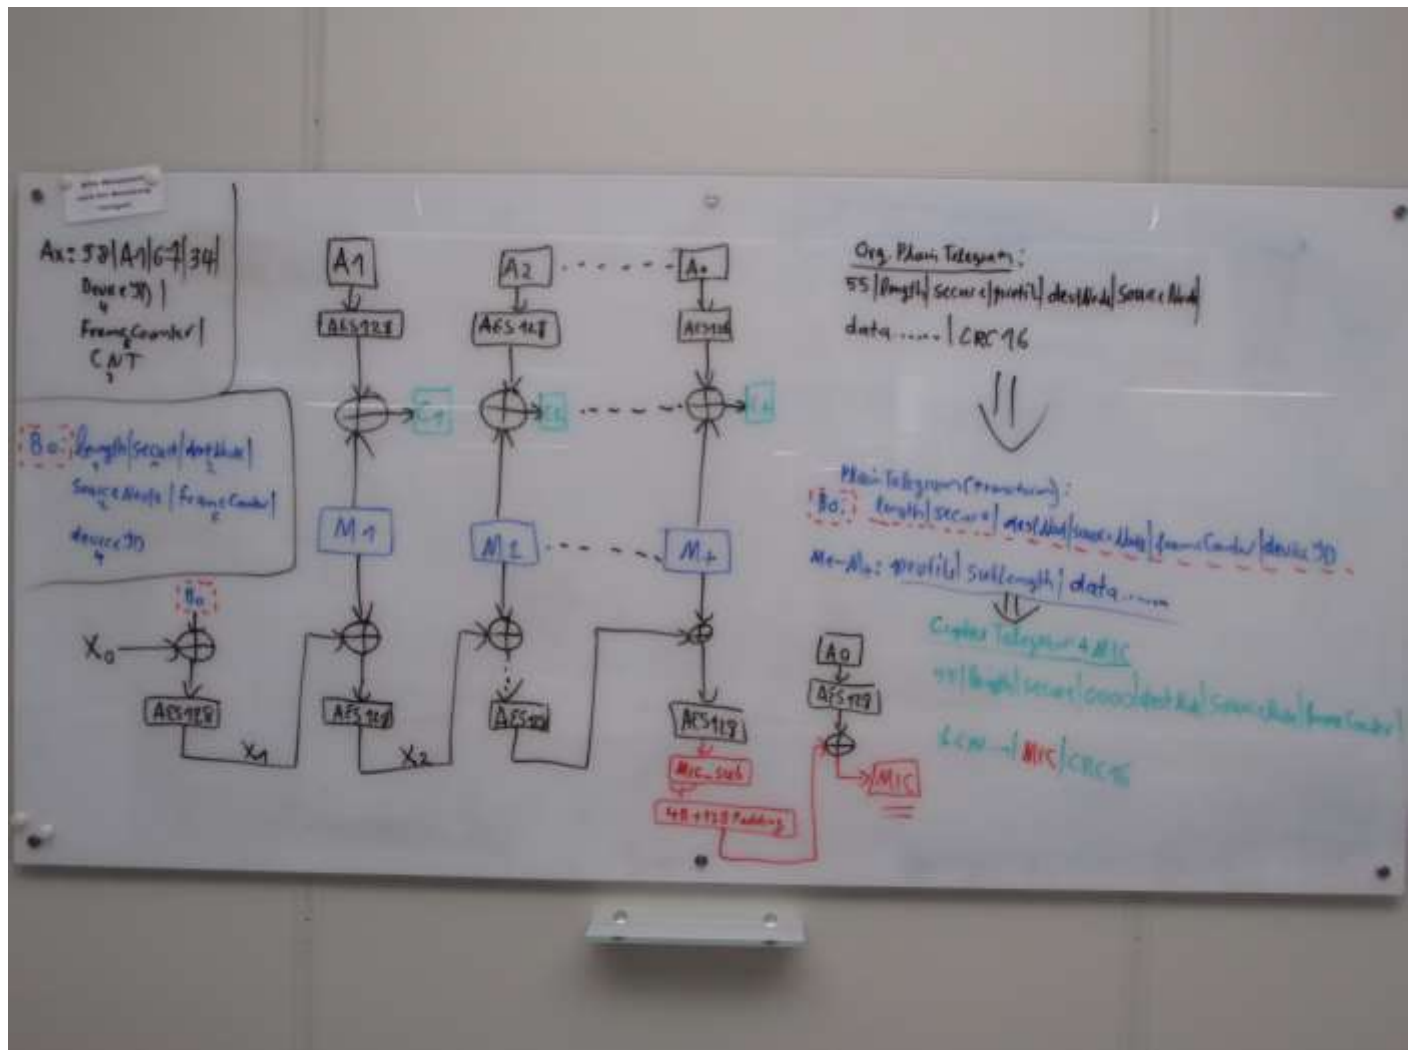 Ax: 58|A1|67|34|
Device ID|
4
FrameCounter|
CNT
B0: length|secure|destNode|
SourceNode|FrameCounter|
deviceID
4
A1
A2
AES128
AES128
AES128
M1
M2
B0
X0
AES128
X1
AES128
X2
AES128
AES128
Mic_sub
4B+12B Padding
A0
AES128
MIC
Org. Plain Telegram:
55|length|secure|profil|destNode|SourceNode|
data.....|CRC16
Plain Telegram
B0: length|secure|destNode|sourceNode|frameCounter|deviceID
profil|sublength|data.....
Cipher Telegram + MIC
55|length|secure|0000|destNod|SourceNode|frameCounter|
MIC|CRC16